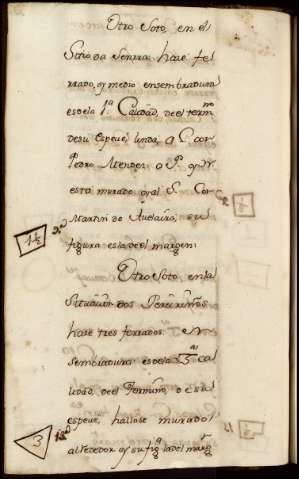 Otro Soto en el
Soto da Senrra haze fe
rrado, y medio ensembradura
es de la 1ª Calidad, de el term.no
de su Especie, linda, a L. con
Pedro Mendez a P. y N
esta murado, y al S. con
Martin do Rudaira, su
figura es la de el margen
1½
Otro Soto en la
Situazion dos Pereiriños
haze tres ferrados en
sembradura es de la 3ª ca
lidad, de el Termino, de su
espeue, hallase murado
al rededor y su fig.ª la del marg.n
3